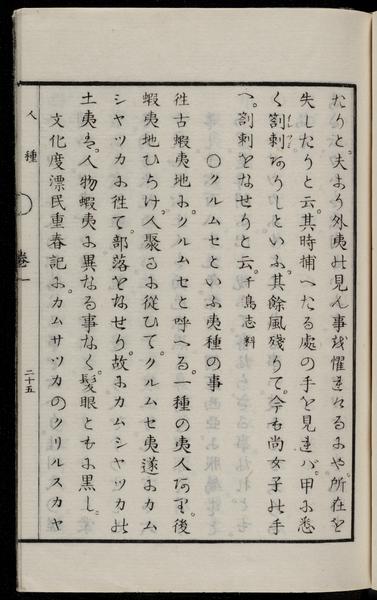 たりと夫より外夷の見ん事を懼きけるにや。所在を
失したりと云其時捕へたる處の手を見きバ。甲に悉
く割刺ありしといふ其餘風殘りて。今も尚女子の手
へ。割刺をなせりと云。千島志料
○クルムセといふ夷種の事
徃古蝦夷地に。クルムセと呼へる。一種の夷人あり。後
蝦夷地ひらけ。人聚るに從ひて。クルムセ夷遂にカム
シヤツカに徃て。部落をなせり。故にカムシヤツカの
土夷は。人物蝦夷に異なる事なく。髮眼ともに黒し。
文化度漂民重春記に。カムサツカのクリルスカヤ
人種
卷一
二十五